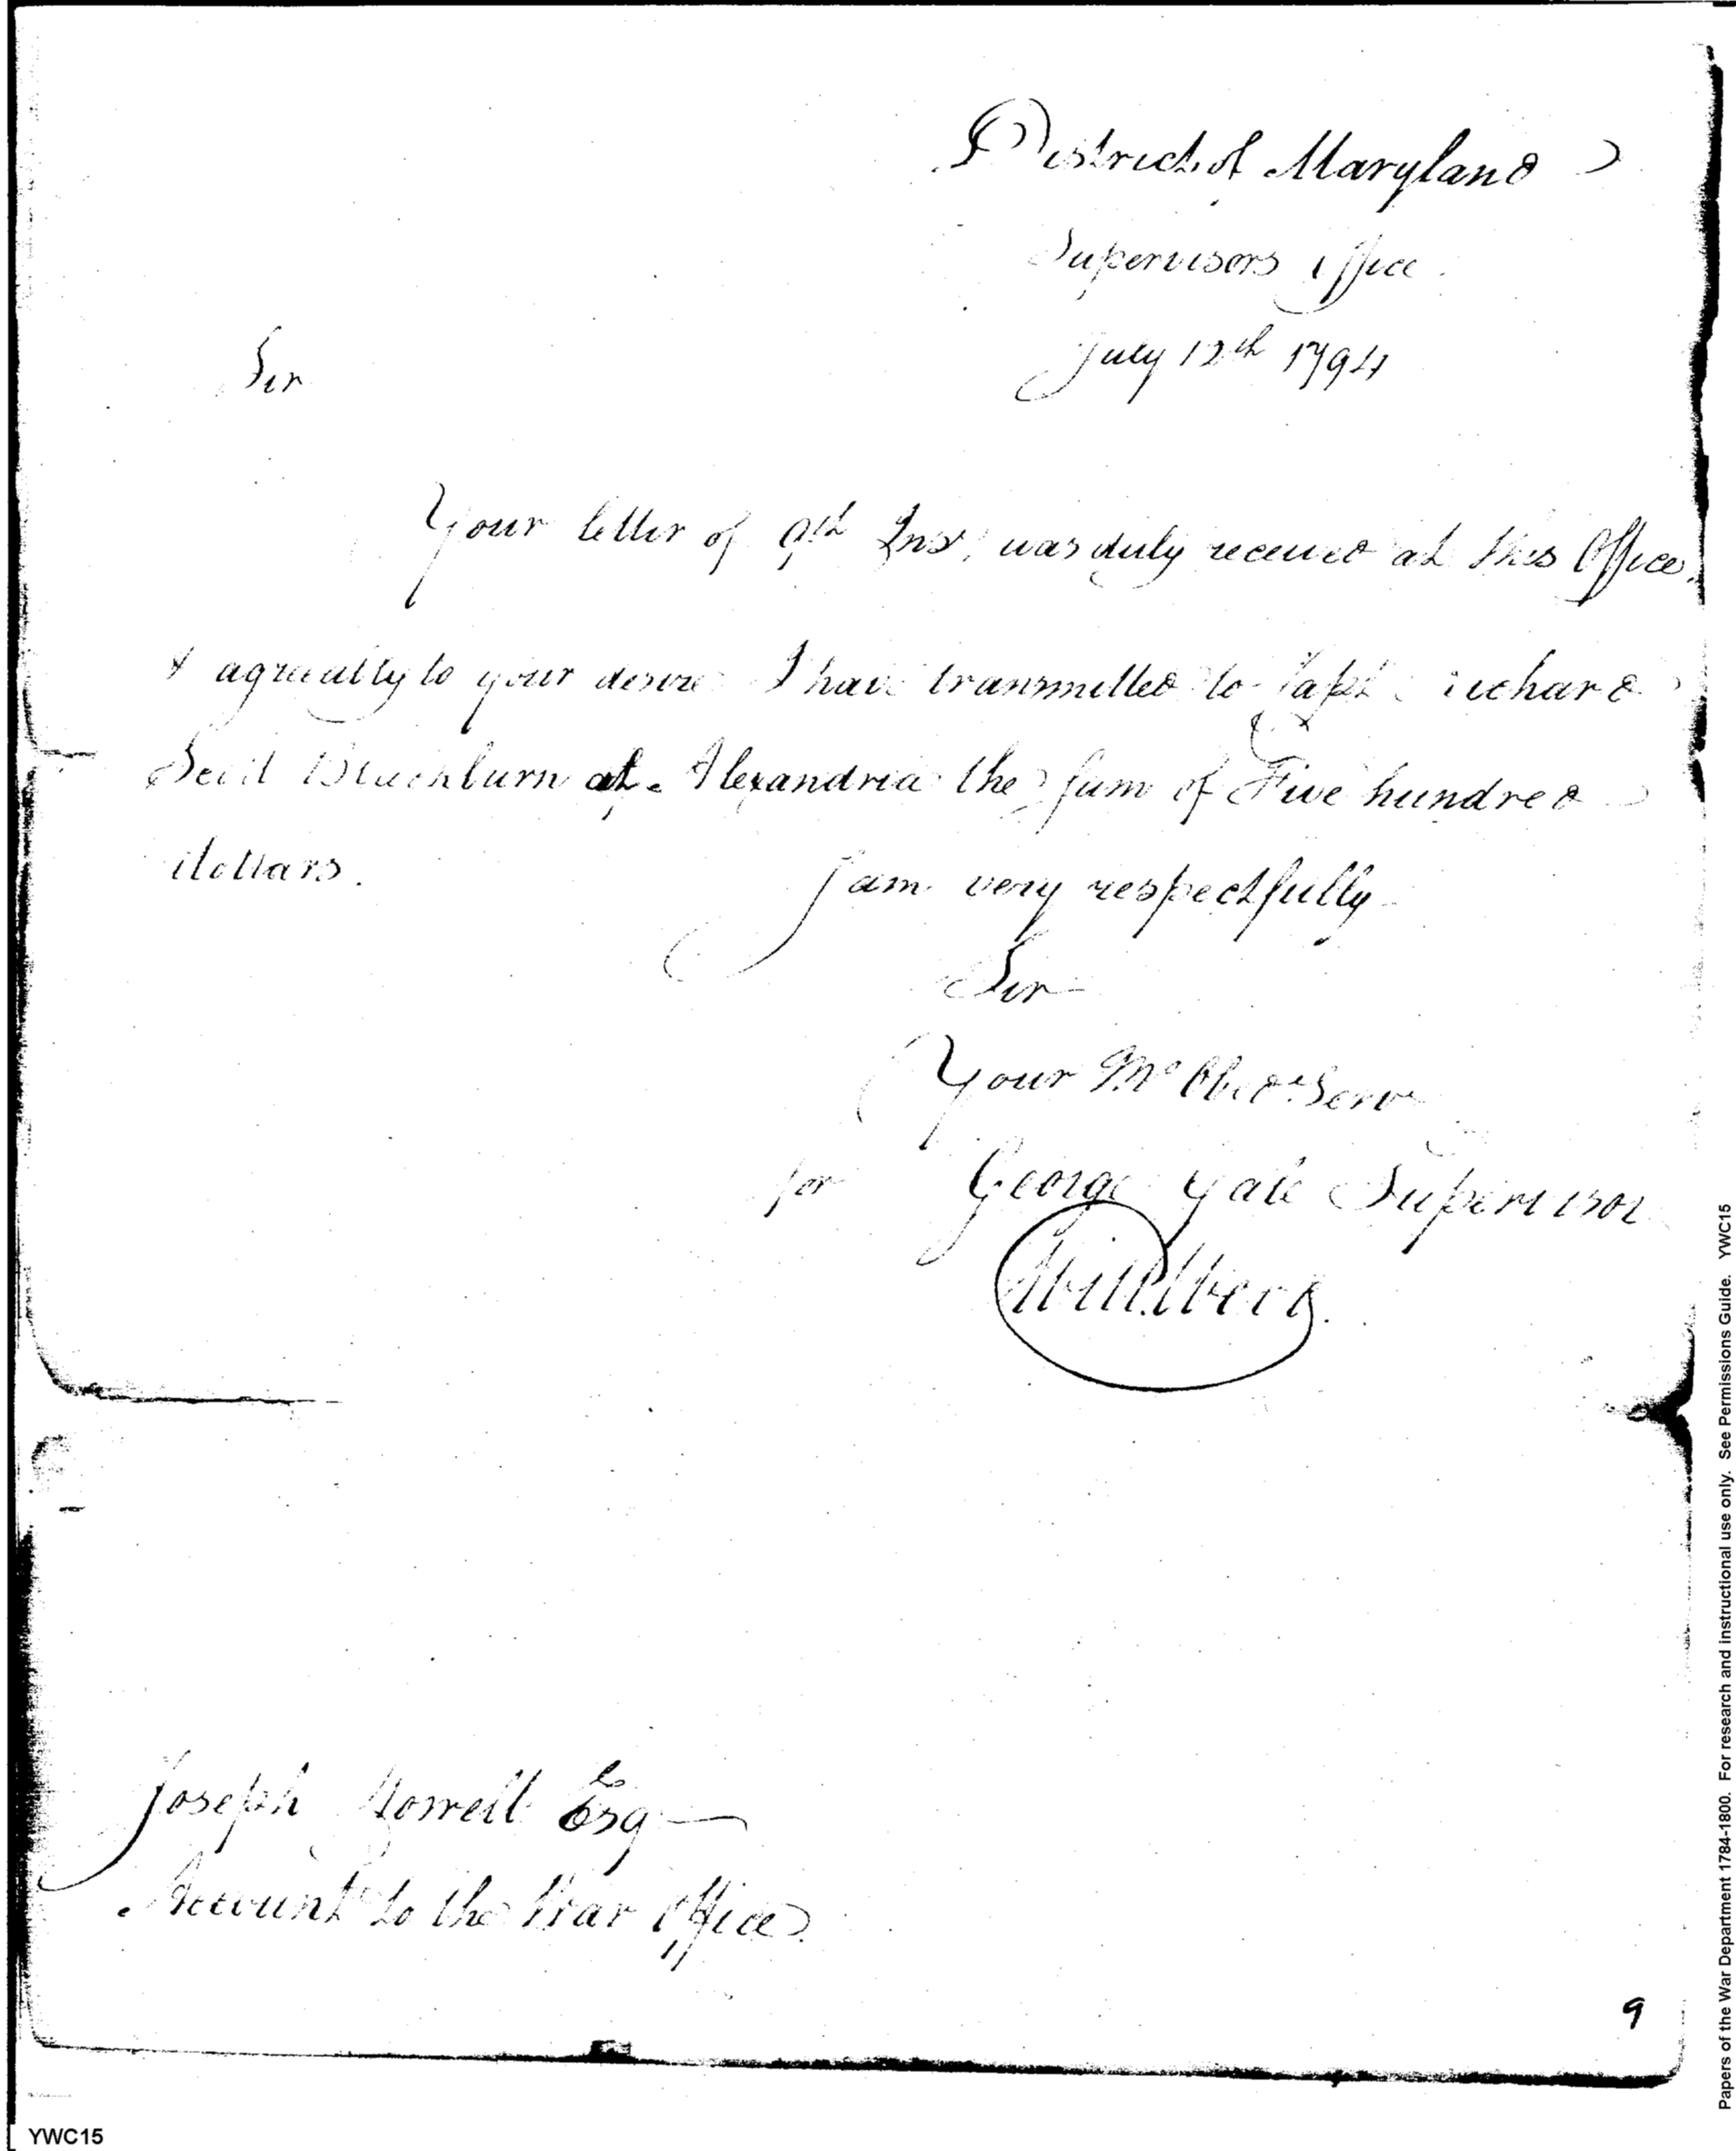 District of Maryland
Supervisors Office
July 12th 1794
Sir
Your letter of 9th Inst. was duly received at this Office
& agreeably to your desire I have transmitted to Capt. Richard
Scott Blackburn at Alexandria the sum of Five hundred
dollars.
I am very respectfully
Sir
Your Mo Obed. Serv
for George Gale Supervisor
Joseph Howell Esq
Account to the War Office
9
YWC15
Papers of the War Department 1784-1800. For research and instructional use only. See Permissions Guide. YWC15